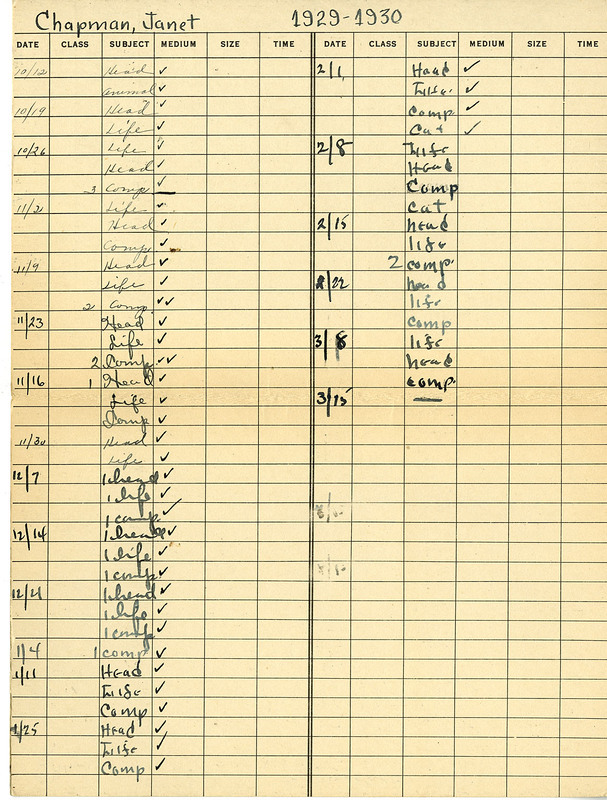 Chapman, Janet 1929-1930
DATE CLASS SUBJECT MEDIUM SIZE TIME DATE CLASS SUBJECT MEDIUM SIZE TIME
10/12 Head ✓
Animal ✓
10/19 Head ✓
Life ✓
10/26 Life ✓
Head ✓
3 Comp ✓
11/2 Life ✓
Head ✓
Comp ✓
11/9 Head ✓
Life ✓
2 Comp. ✓✓
11/23 Head ✓
Life ✓
2 Comp ✓✓
11/16 1 Head ✓
Life ✓
Comp ✓
11/30 Head ✓
Life ✓
12/7 1 head ✓
1 life ✓
1 comp ✓
12/14 1 head ✓
1 life ✓
1 comp ✓
12/21 1 head ✓
1 life ✓
1 comp ✓
1/4 1 comp ✓
1/11 Head ✓
Life ✓
Comp ✓
1/25 Head ✓
Life ✓
Comp ✓
2/1 Head ✓
Life ✓
Comp. ✓
Cat ✓
2/8 Life
Head
Comp
Cat
2/15 head
life
2 comp.
2/22 head
life
comp
3/8 life
head
comp.
3/15 —